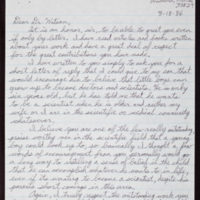 9-18-86
Dear Dr. Wilson,
It is an honor, sir, to be able to greet you even
if only by letter. I have read articles and books written
about your work and have a great deal of respect
for the great contributions you have made.
I have written to you simply to ask you for a
short letter of reply that I could give to my son that
would encourage him to believe that little boys can
grow up to become doctors and scientists. He is only
six years old, but he has told us that he wants
to be a scientist when he is older and neither my
wife or I are in the scientific or medical community
whatsoever.
I believe you are one of the few really outstanding
persons working now in the scientific field that a young
boy could look up to, so basically I thought a few
words of encouragement from you personally would go
a long way to instilling a sense of belief in the child
that he can accomplish whatever he wants to in life
even if the wanting to become a scientist, despite his
parents short comings in this area.
Again, I truly respect the outstanding work you